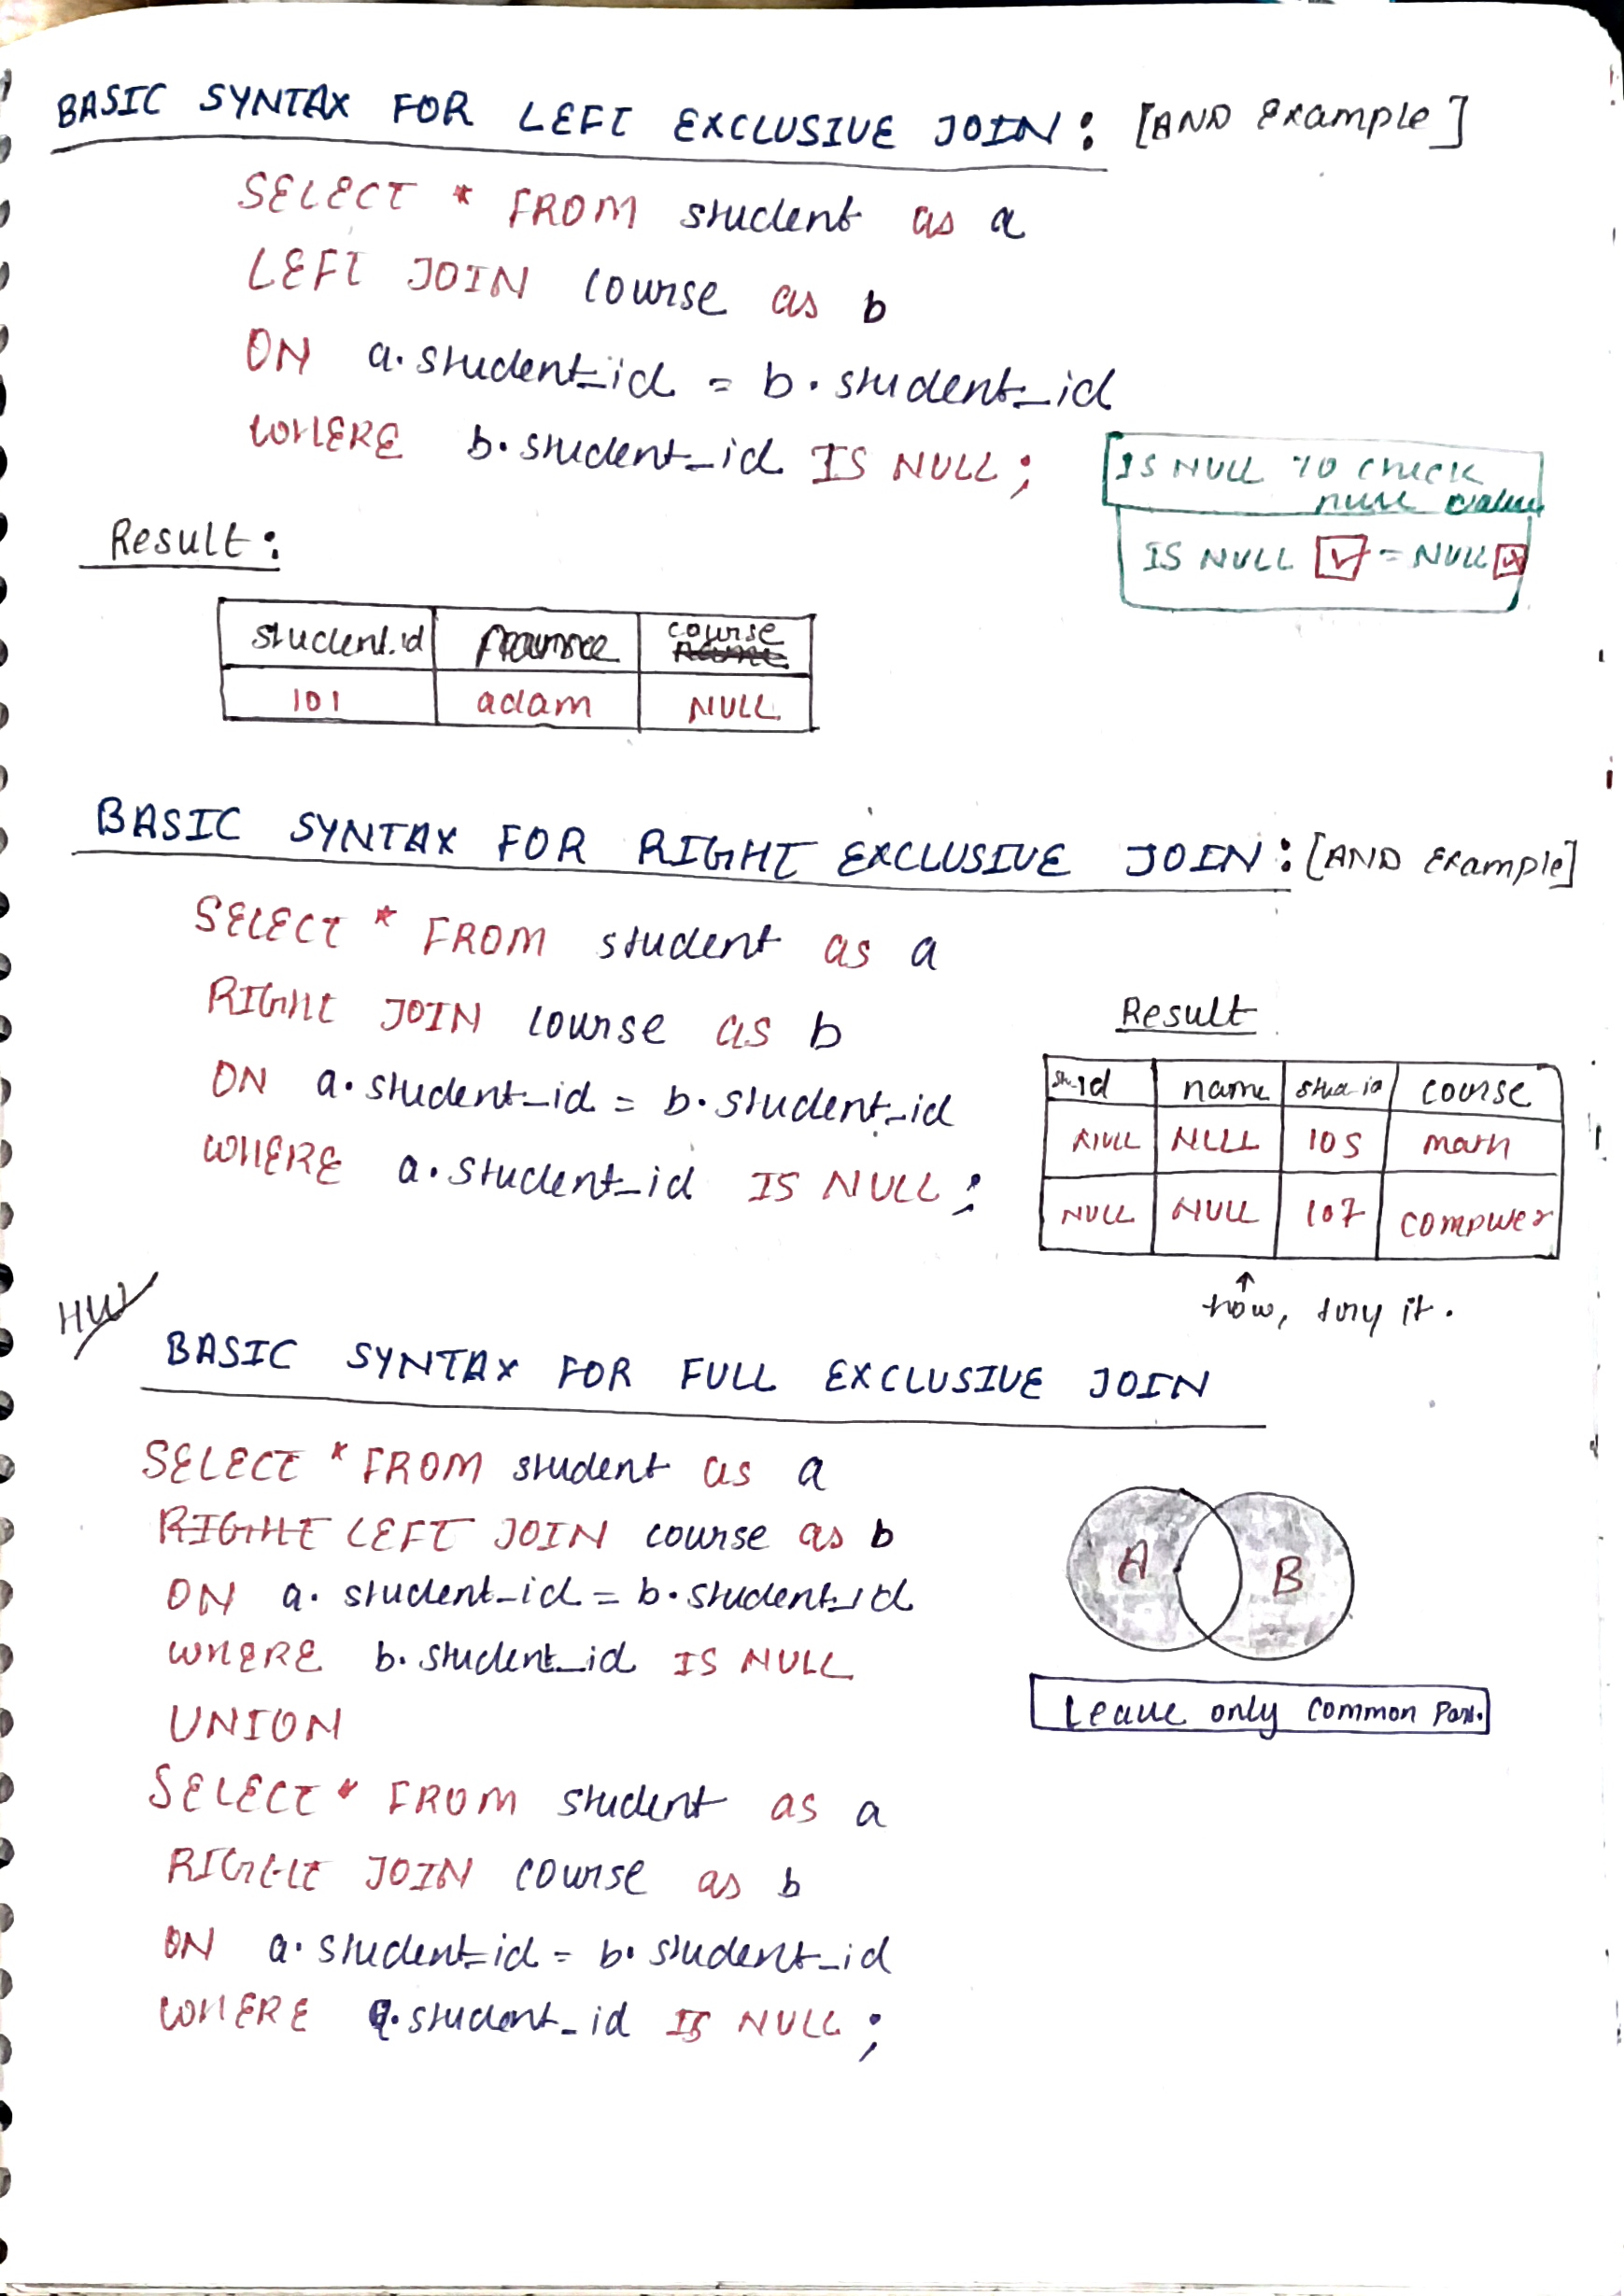 BASIC SYNTAX FOR LEFT EXCLUSIVE JOIN: [AND Example]
SELECT * FROM student as a
LEFT JOIN course as b
ON a.student_id = b.student_id
WHERE b.student_id IS NULL;
IS NULL to check
null value
IS NULL ☑ = NULL ☒
Result:
student.id course
101 adam NULL
BASIC SYNTAX FOR RIGHT EXCLUSIVE JOIN: [AND Example]
SELECT * FROM student as a
RIGHT JOIN course as b
ON a.student_id = b.student_id
WHERE a.student_id IS NULL;
Result
name course
NULL NULL 105 math
NULL NULL 107 computer
↑
how, try it.
HW
BASIC SYNTAX FOR FULL EXCLUSIVE JOIN
SELECT * FROM student as a
RIGHT LEFT JOIN course as b
ON a.student_id = b.student_id
WHERE b.student_id IS NULL
UNION
SELECT * FROM student as a
RIGHT JOIN course as b
ON a.student_id = b.student_id
WHERE a.student_id IS NULL;
A B
Leave only common Part.